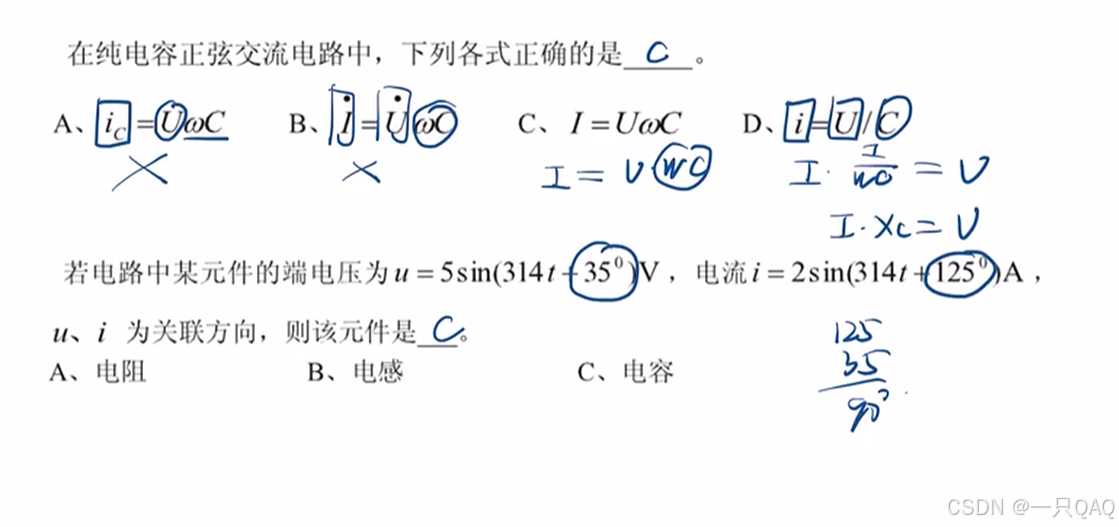 在纯电容正弦交流电路中，下列各式正确的是 C 。
A、i_C=UωC B、İ=U̇ωC C、I=UωC D、i=U/C
× × I = U WC I · 1/WC = U
I · Xc = U
若电路中某元件的端电压为u=5sin(314t+35⁰)V，电流i=2sin(314t+125⁰)A，
u、i 为关联方向，则该元件是 C 。
125
A、电阻 B、电感 C、电容
35
90°
CSDN @一只QAQ